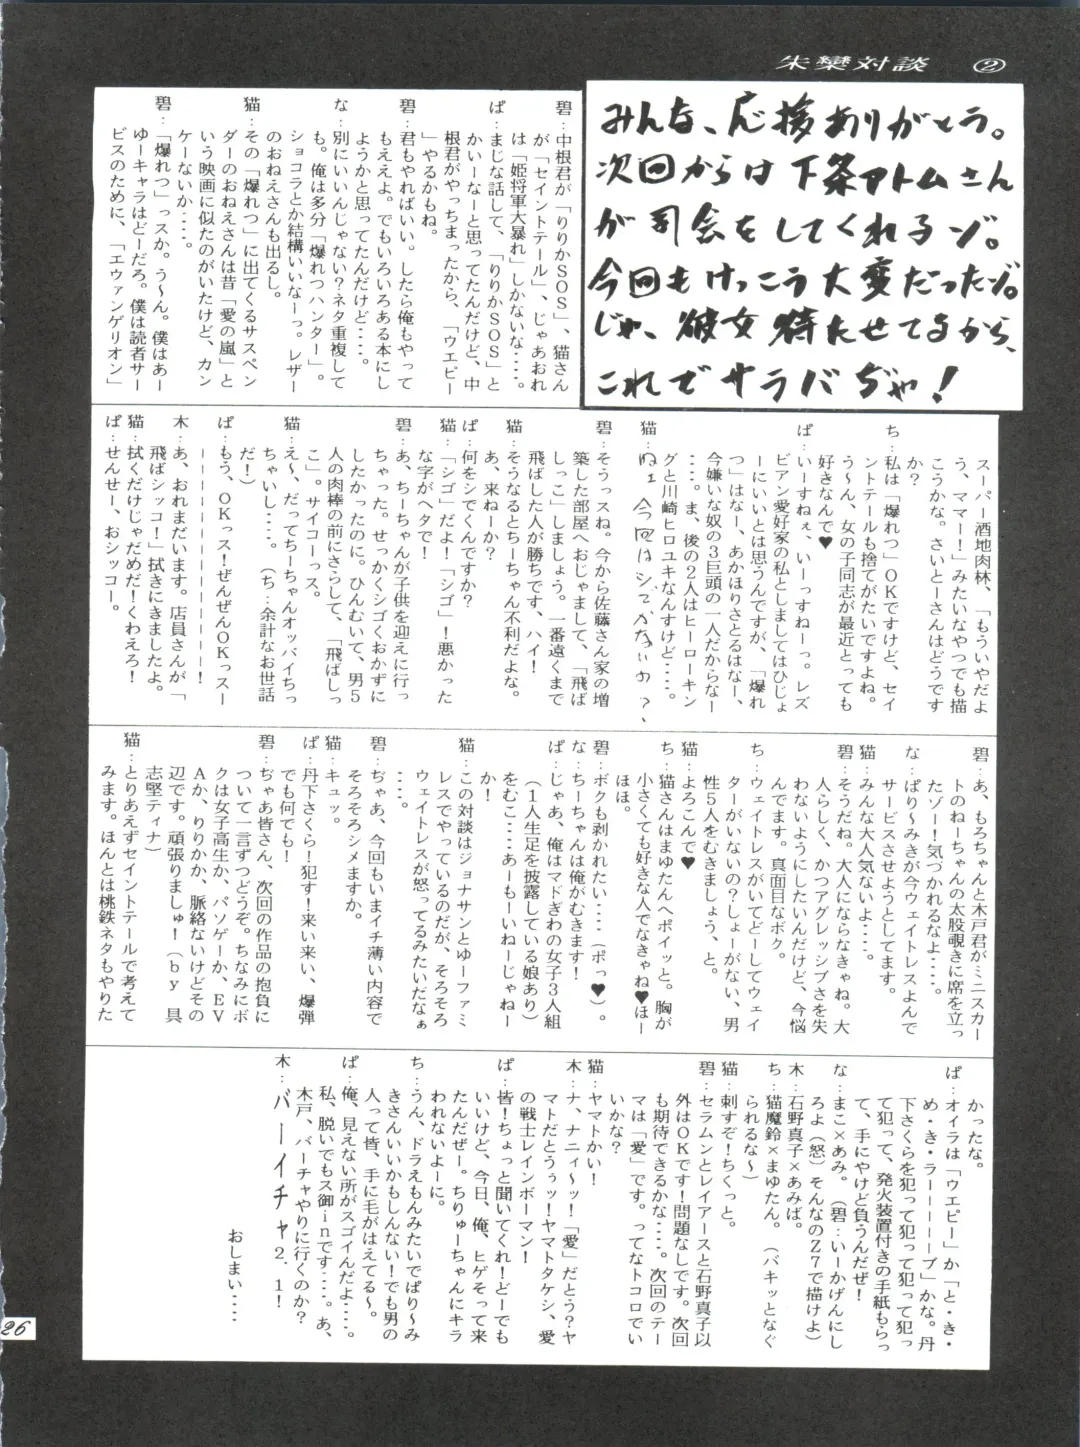 朱欒対談 ②
みんな、応援ありがとう。
次回からは下条アトムさん
が司会をしてくれるゾ。
今回もけっこう大変だったゾ。
じゃ、彼女待たせてるから、
これでサラバぢゃ!
碧：中根君が「りりかSOS」、猫さん
が「セイントテール」、じゃあおれ
は「姫将軍大暴れ」しかないな‥‥。
ぱ：まじな話して、「りりかSOS」と
かいーなーと思ってたんだけど、中
根君がやっちまったから、「ウエピー
」やるかもね。
碧：君もやればいい。したら俺もやって
もええよ。でもいろいろある本にし
ようかと思ってたんだけど‥‥。
な：別にいいんじゃない?ネタ重複して
も。俺は多分「爆れつハンター」。
ショコラとか結構いいなーっ。レザー
のおねえさんも出るし。
猫：その「爆れつ」に出てくるサスペン
ダーのおねえさんは昔「愛の嵐」と
いう映画に似たのがいたけど、カン
ケーないか‥‥。
碧：「爆れつ」っスか。う～ん。僕はあー
ゆーキャラはどーだろ。僕は読者サー
ビスのために、「エヴァンゲリオン」
スーパー酒地肉林、「もういやだよ
う、ママー!」みたいなやつでも描
こうかな。さいとーさんはどうです
か?
ち：私は「爆れつ」OKですけど、セイ
ントテールも捨てがたいですよね。
う～ん、女の子同志が最近とっても
好きなんで♥
ぱ：いーすねぇ、いーっすねーっ。レズ
ビアン愛好家の私としましてはひじょ
ーにいいとは思うんですが、「爆れ
つ」はなー、あかほりさとるはなー、
今嫌いな奴の3巨頭の一人だからなー
‥‥。ま、後の2人はヒーローキン
グと川崎ヒロユキなんすけど‥‥。
猫：ねェ 今回はシてかないの?、
碧：そうっスね。今から佐藤さん家の増
築した部屋へおじゃまして、「飛ば
しっこ」しましょう。一番遠くまで
飛ばした人が勝ちです、ハイ!
猫：そうなるとちーちゃん不利だよな。
あ、来ねーか?
ぱ：何をシでくんですか?
猫：「シゴ」だよ!「シゴ」!悪かった
な字がヘタで!
碧：あ、ちーちゃんが子供を迎えに行っ
ちゃった。せっかくシゴくおかずに
したかったのに。ひんむいて、男5
人の肉棒の前にさらして、「飛ばしっ
こ」。サイコーっス。
猫：え～、だってちーちゃんオッパイちっ
ちゃいし‥‥。(ち：余計なお世話
だ!)
ぱ：もう、OKっス!ぜんぜんOKっスー
ーーーーーーーーーーーーーー!
木：あ、おれまだいます。店員さんが「
飛ばシッコ!」拭きにきましたよ。
猫：拭くだけじゃだめだ!くわえろ!
ぱ：せんせー、おシッコー。
碧：あ、もろちゃんと木戸君がミニスカー
トのねーちゃんの太股覗きに席を立っ
たゾー!気づかれるなよ‥‥。
な：ぱり～みきが今ウェイトレスよんで
サービスさせようとしてます。
猫：みんな大人気ないよ‥‥。
碧：そうだね。大人にならなきゃね。大
人らしく、かつアグレッシブさを失
わないようにしたいんだけど、今悩
んでます。真面目なボク。
ち：ウェイトレスがいてどーしてウェイ
ターがいないの?しょーがない、男
性5人をむきましょう、と。
猫：よろこんで♥
ち：猫さんはまゆたんへポイッと。胸が
小さくても好きな人でなきゃね♥ほー
ほほ。
碧：ボクも剥かれたい‥‥(ポっ♥)。
な：ちーちゃんは俺がむきます!
ぱ：じゃあ、俺はマドぎわの女子3人組
(1人生足を披露している娘あり)
をむこ‥‥あーもーいねーじゃねー
か!
猫：この対談はジョナサンとゆーファミ
レスでやっているのだが、そろそろ
ウェイトレスが怒ってるみたいだなぁ
‥‥。
碧：ぢゃあ、今回もいまイチ薄い内容で
そろそろシメますか。
猫：キュッ。
ぱ：丹下さくら!犯す!来い来い、爆弾
でも何でも!
碧：ぢゃあ皆さん、次回の作品の抱負に
ついて一言ずつどうぞ。ちなみにボ
クは女子高生か、パソゲーか、EV
Aか、りりかか、脈絡ないけどその
辺です。頑張りましゅ!(by 具
志堅ティナ)
猫：とりあえずセイントテールで考えて
みます。ほんとは桃鉄ネタもやりた
かったな。
ぱ：オイラは「ウエピー」か「と・き・
め・き・ラーーーーブ」かな。丹
下さくらを犯って犯って犯って犯っ
て犯って、発火装置付きの手紙もらっ
て、手にやけど負うんだぜ!
な：まこ×あみ。(碧：いーかげんにし
ろよ(怒)そんなのZ7で描けよ)
木：石野真子×あみば。
ち：猫魔鈴×まゆたん。(バキッとなぐ
られるな～)
猫：刺すぞ!ちくっと。
碧：セラムンとレイアースと石野真子以
外はOKです!問題なしです。次回
も期待できるかな‥‥。次回のテー
マは「愛」です。ってなトコロでい
いかな?
猫：ヤマトかい!
木：ナ、ナニィ～ッ!「愛」だとう?ヤ
マトだとうぅッ!ヤマトタケシ、愛
の戦士レインボーマン!
ぱ：皆!ちょっと聞いてくれ!どーでも
いいけど、今日、俺、ヒゲそって来
たんだぜー。ちりゅーちゃんにキラ
われないよーに。
ち：うん、ドラえもんみたいでぱり～み
きさんいいかもしんない!でも男の
人って皆、手に毛がはえてる～。
ぱ：俺、見えない所がスゴイんだよ‥‥。
私、脱いでもス御inです‥‥。あ、
木戸、バーチャやりに行くのか?
木：バーイチャ2.1!
おしまい‥‥
26